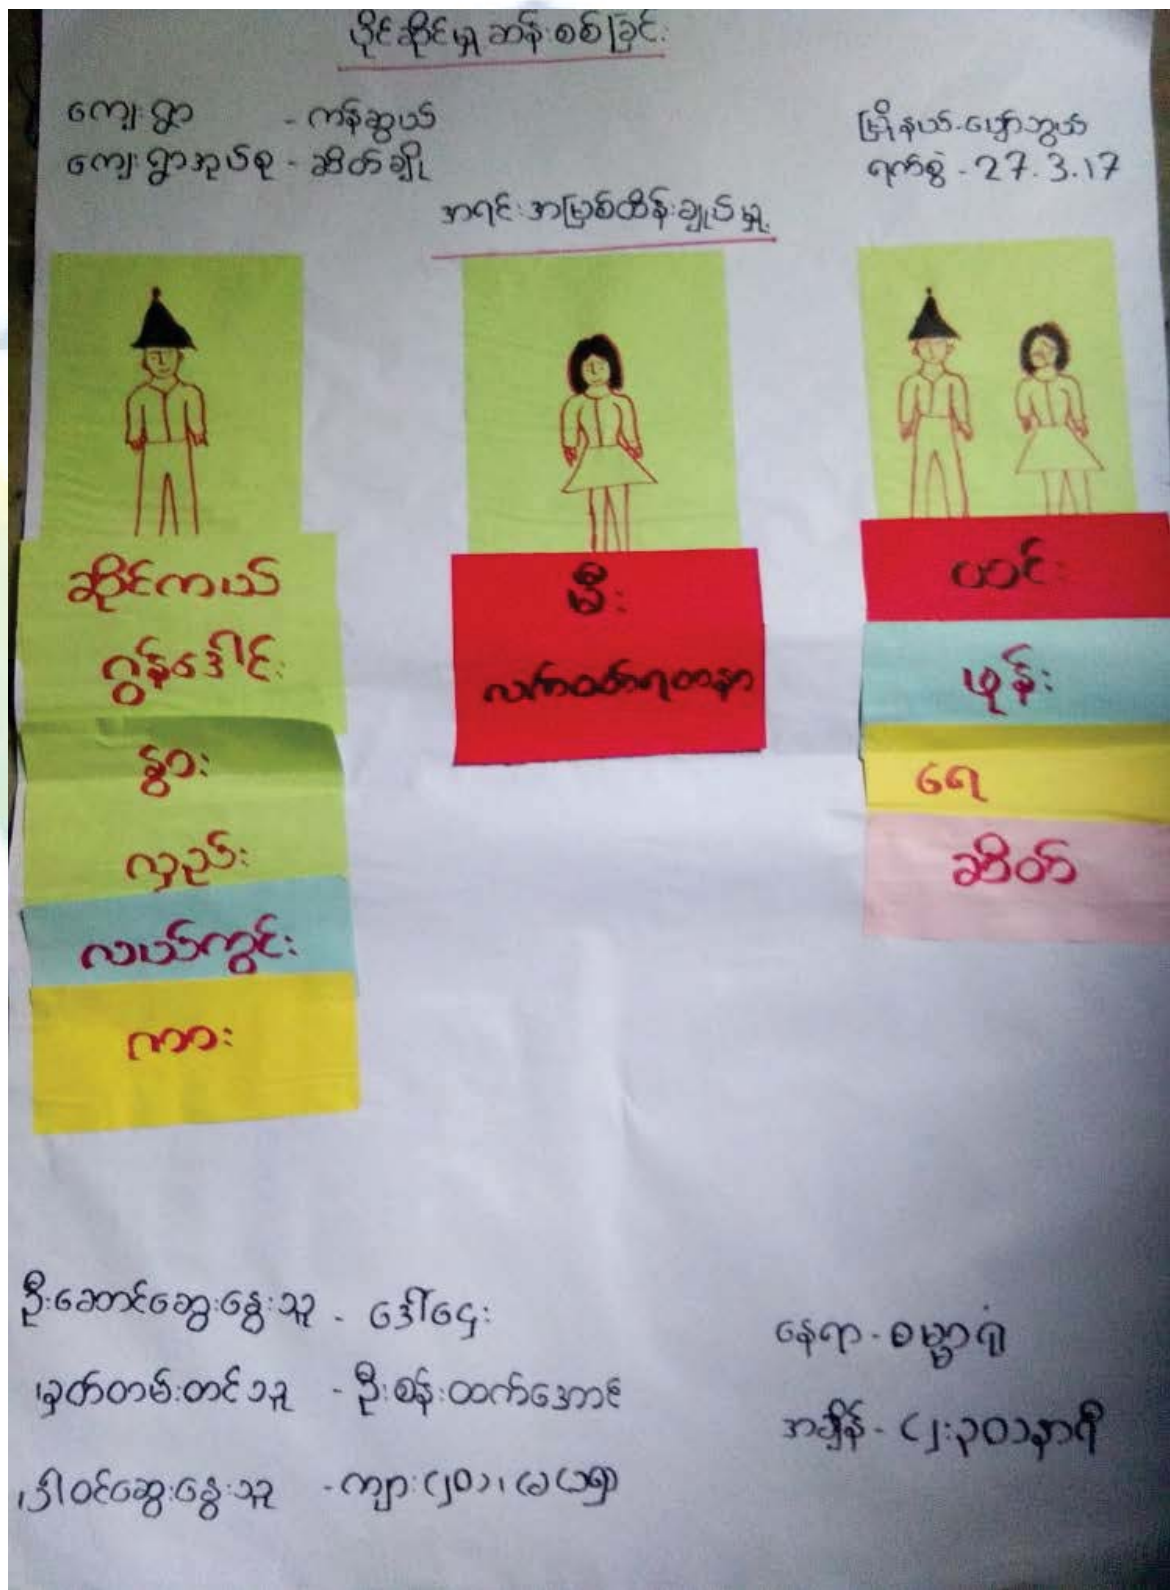 ပိုင်ဆိုင်မှု ဆန်းစစ်ခြင်း
ကျေးရွာ - ကန်ဆွယ်
ကျေးရွာအုပ်စု - ဆိတ်ချို
မြို့နယ် - ပျော်ဘွယ်
ရက်စွဲ - 27.3.17
အရင်းအမြစ်ထိန်းချုပ်မှု
ဆိုင်ကယ်
ဂွန်ဒေါင်း
နွား
လှည်း
လယ်ကွင်း
ကား
မီး
လက်ဝတ်ရတနာ
ဟင်း
ဖုန်း
ရေ
ဆိတ်
ဦးဆောင်ဆွေးနွေးသူ - ဒေါ်ဌေး
မှတ်တမ်းတင်သူ - ဦးစန်းထက်အောင်
ပါဝင်ဆွေးနွေးသူ - ကျား (၂၀)၊ မ (၁၅)
နေရာ - ဓမ္မာရုံ
အချိန် - (၂:၃၀) နာရီ